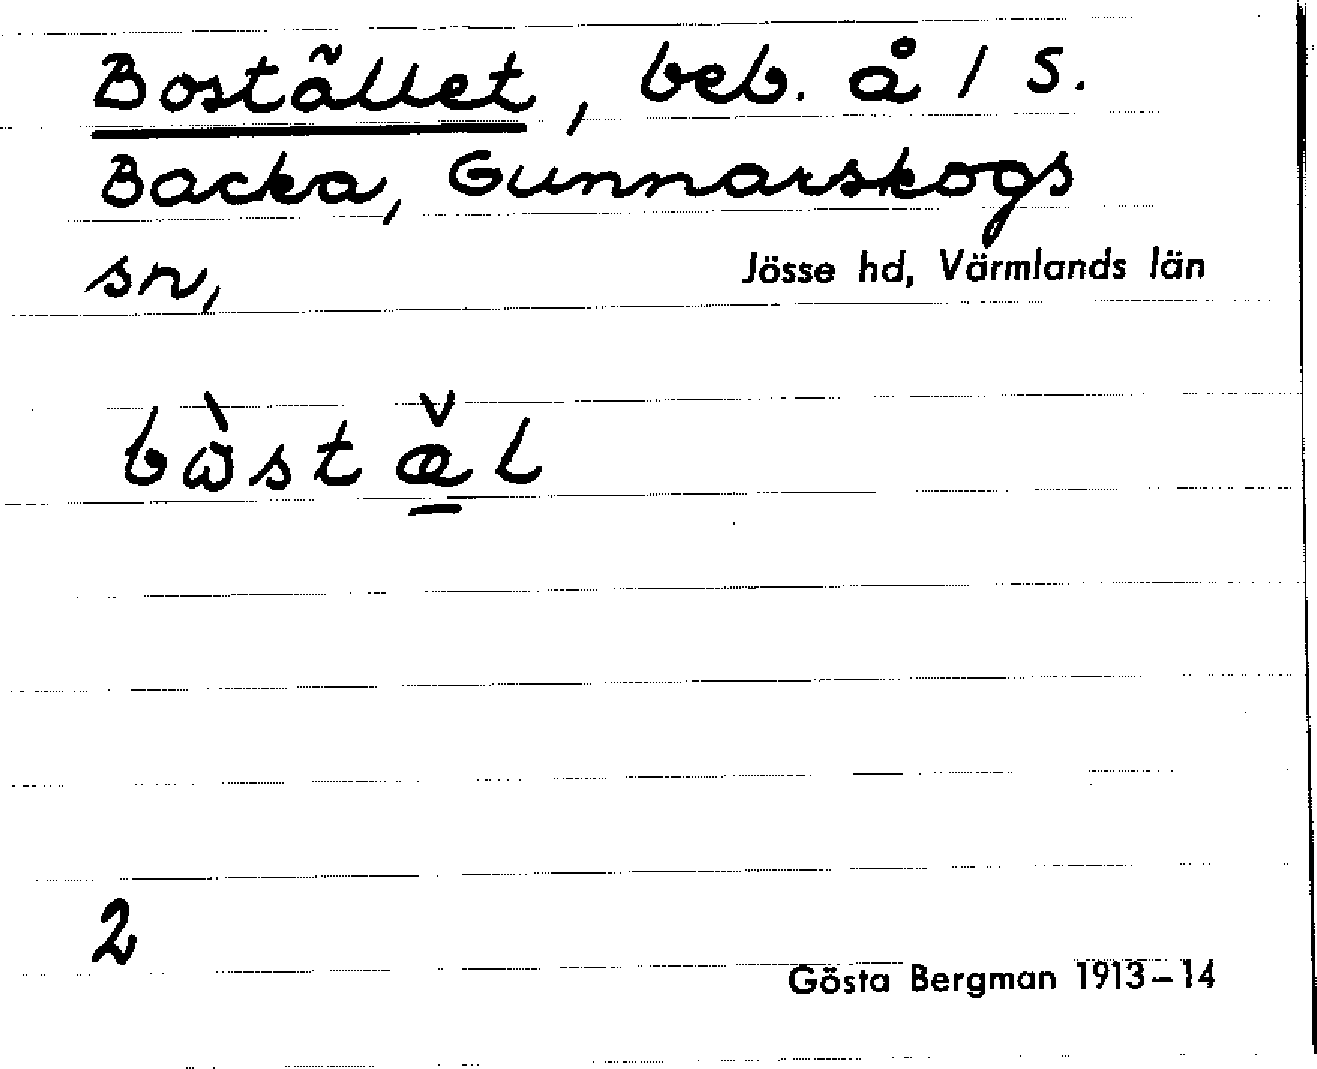 Bostället, beb. å 1 S.
Backa, Gunnarskogs
sn, Jösse hd, Värmlands län
bὼstæ̠̌l
2
Gösta Bergman 1913–14